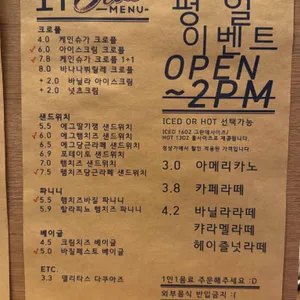 MENU-
크로플
4.0 케인슈가 크로플
✓6.0 아이스크림 크로플
✓7.8 케인슈가 크로플 1+1
8.0 바나나뷔륄레 크로플
+ 2.0 바닐라 아이스크림
+ 2.0 넛츠크림
샌드위치
5.5 에그딸기잼 샌드위치
✓6.0 에그햄치즈 샌드위치
6.5 에그당근라페 샌드위치
6.9 포테이토 샌드위치
7.0 햄치즈 샌드위치
✓7.5 햄치즈당근라페 샌드위치
파니니
✓5.5 햄치즈바질 파니니
5.9 할라피뇨 햄치즈 파니니
베이글
4.5 크림치즈 베이글
✓5.0 바질페스토 베이글
ETC.
3.3 델리타스 다쿠아즈
평일
이벤트
OPEN
~2PM
ICED OR HOT 선택가능
ICED 16OZ 그란데사이즈/
HOT 13OZ 톨사이즈로 제공됩니다.
정상가에서 할인 적용된 가격입니다.
3.0 아메리카노
3.8 카페라떼
4.2 바닐라라떼
캬라멜라떼
헤이즐넛라떼
1인1음료 주문해주세요 :D
외부음식 반입금지 :(